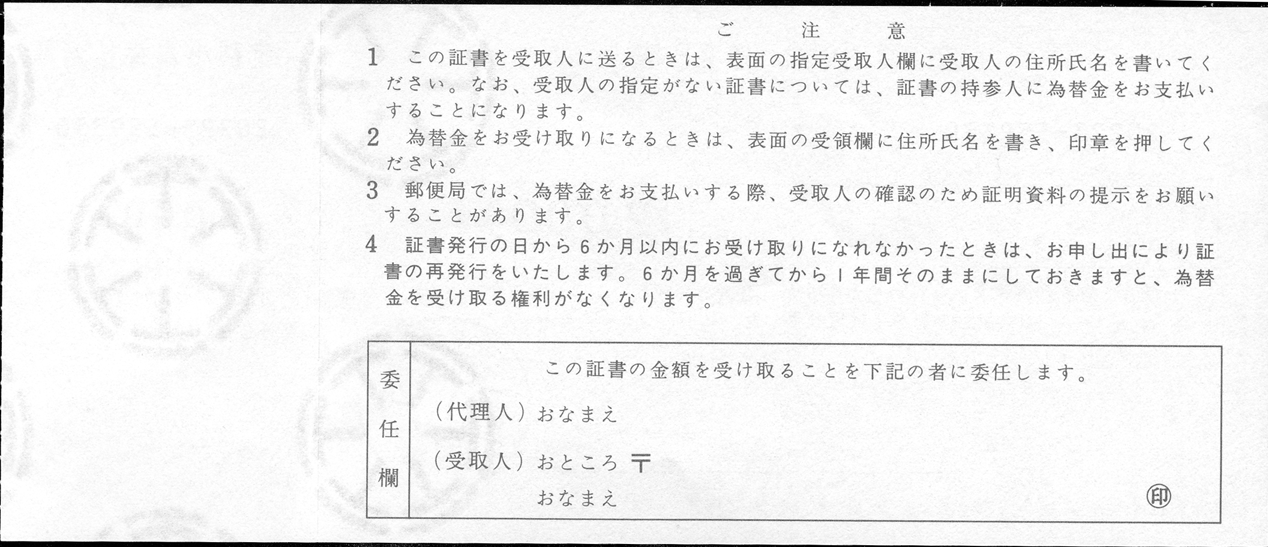 ご注意
1 この証書を受取人に送るときは、表面の指定受取人欄に受取人の住所氏名を書いてく
ださい。なお、受取人の指定がない証書については、証書の持参人に為替金をお支払い
することになります。
2 為替金をお受け取りになるときは、表面の受領欄に住所氏名を書き、印章を押してく
ださい。
3 郵便局では、為替金をお支払いする際、受取人の確認のため証明資料の提示をお願い
することがあります。
4 証書発行の日から6か月以内にお受け取りになれなかったときは、お申し出により証
書の再発行をいたします。6か月を過ぎてから1年間そのままにしておきますと、為替
金を受け取る権利がなくなります。
委任欄
この証書の金額を受け取ることを下記の者に委任します。
(代理人)おなまえ
(受取人)おところ 〒
おなまえ
㊞